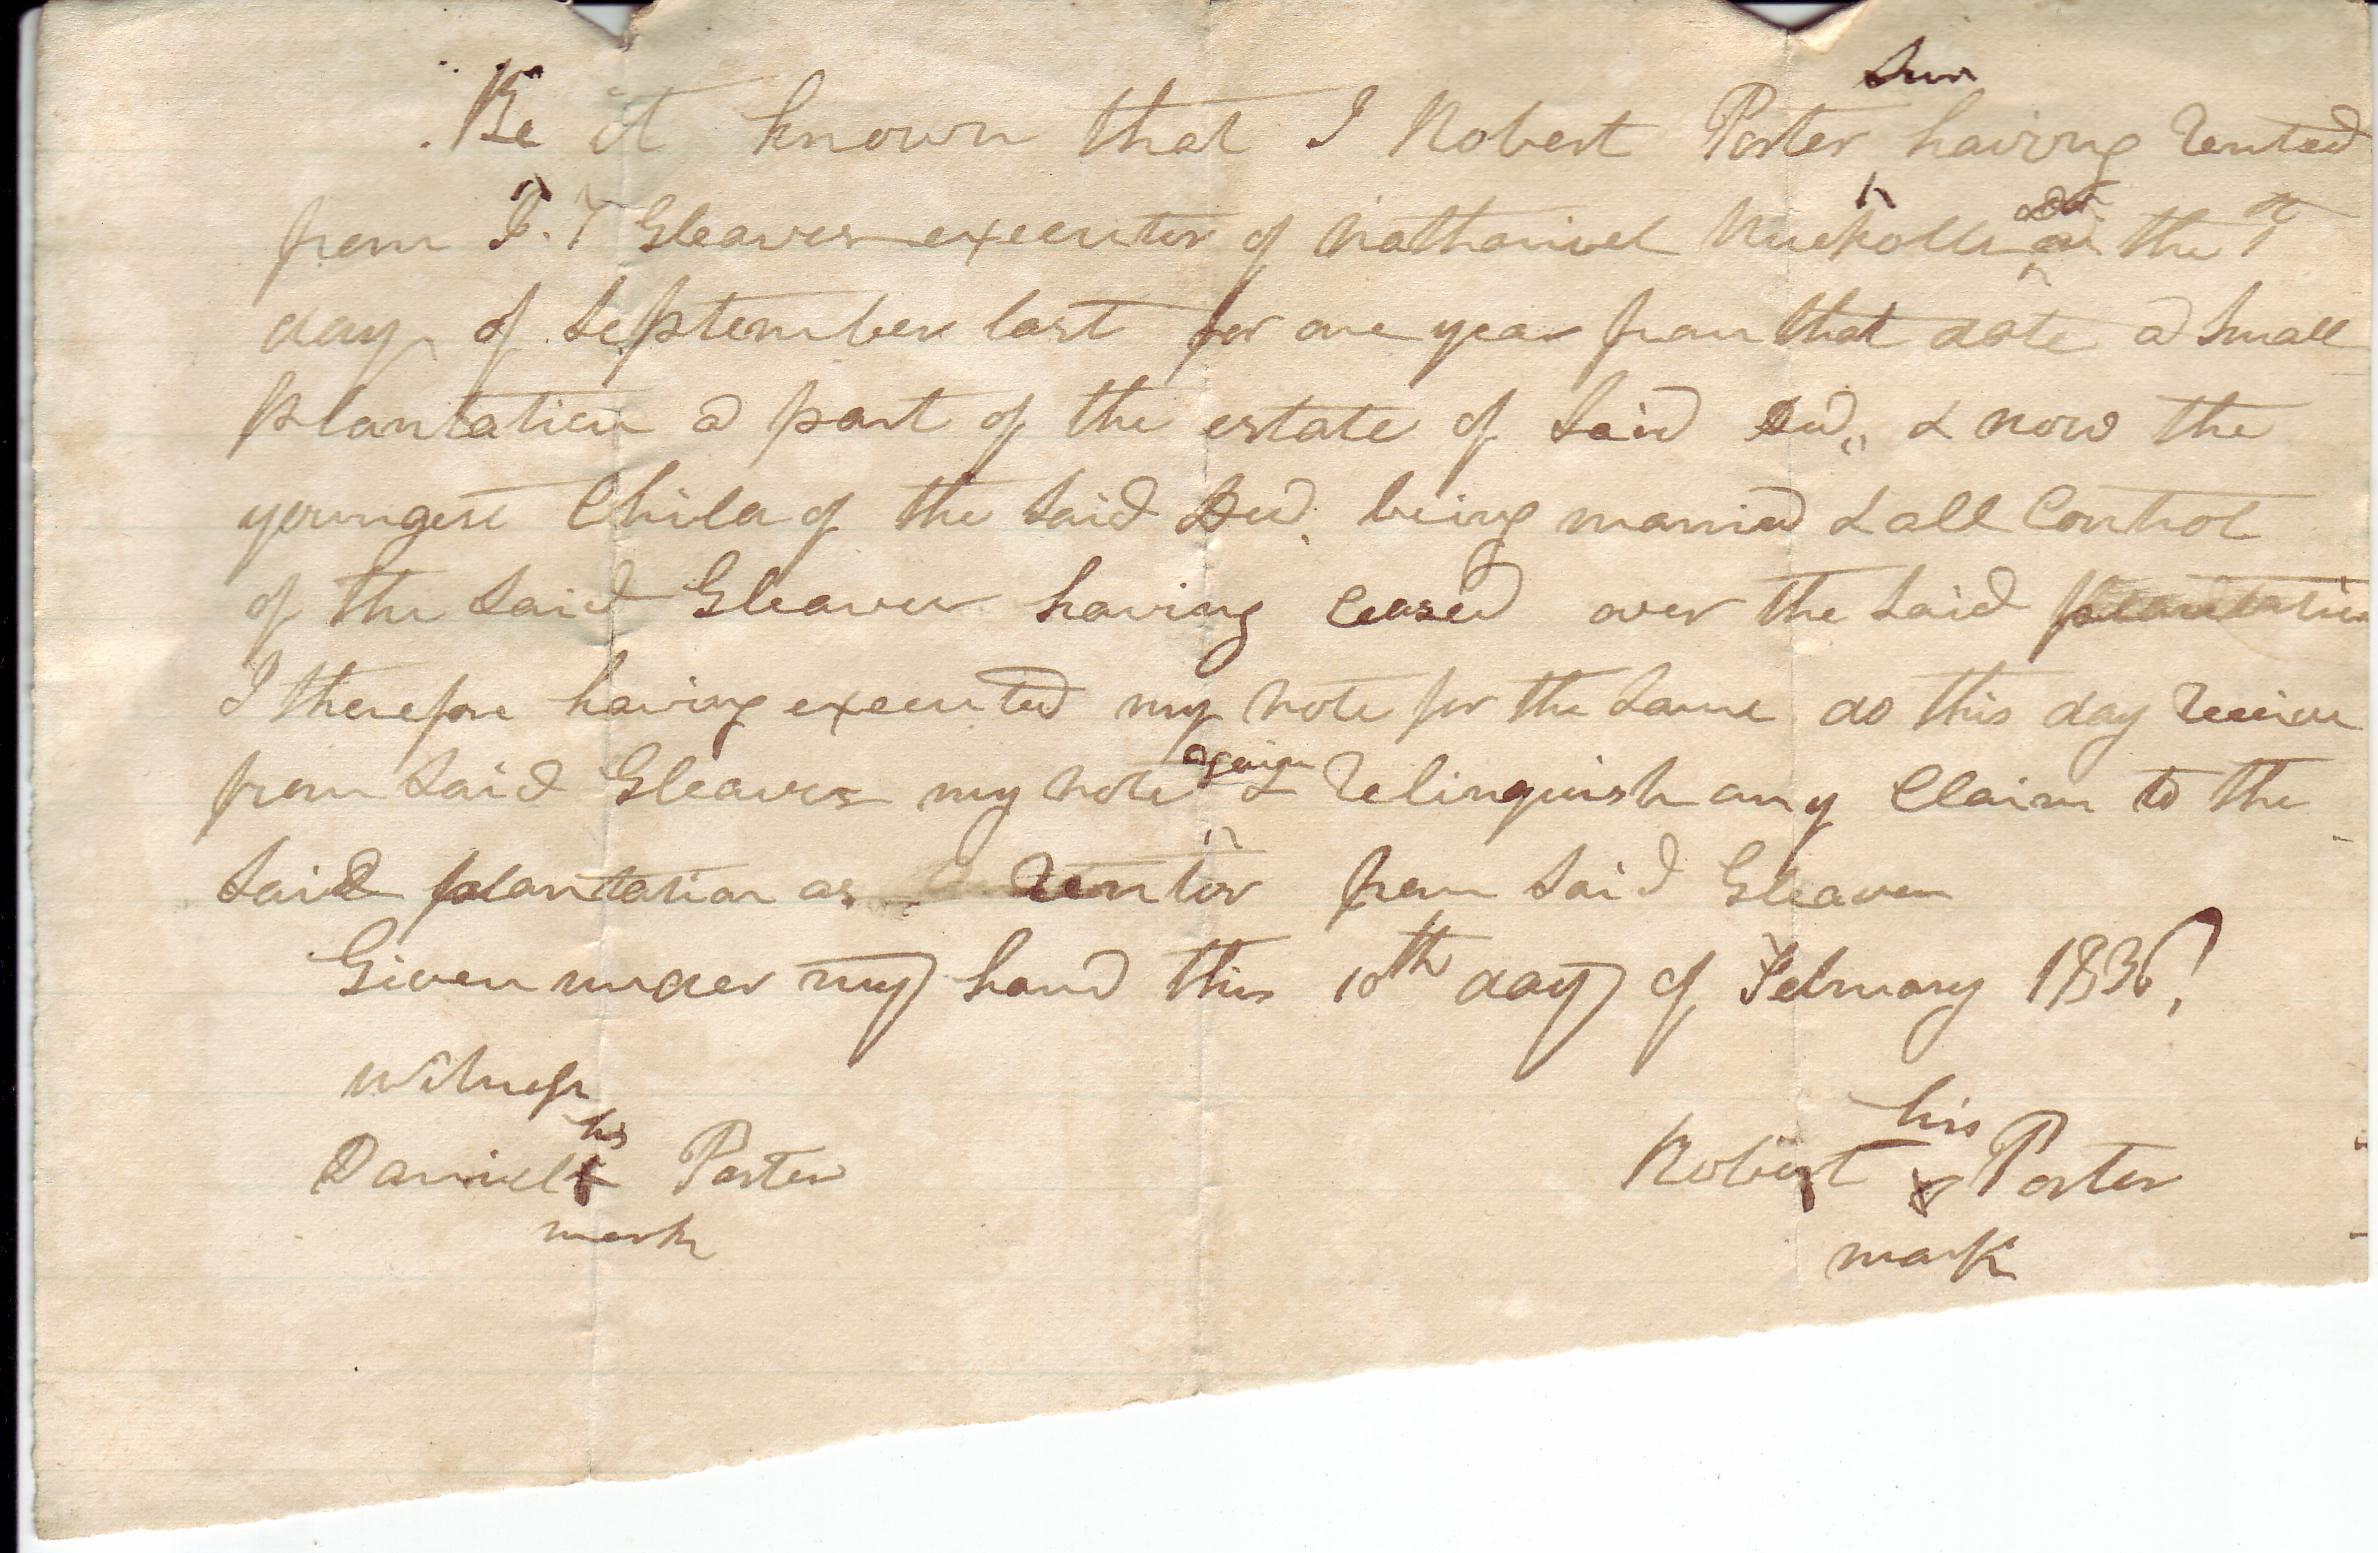 Senr
Be it known that I Robert Porter having rented
from J. T Gleaves executor of Nathaniel Nuckolls decd on the
day of September last for one year from that date a small
plantation a part of the estate of said Decd. & now the
youngest Child of the said Decd. being married & all Control
of the said Gleaves having ceased over the said plantation
I therefore having executed my note for the same do this day receive
again
from said Gleaves my note & relinquish any Claim to the
said plantation as rentor from said Gleaves
Given under my hand this 10th day of February 1836
Witness
his
his
Daniel x Porter
Robert x Porter
mark
mark